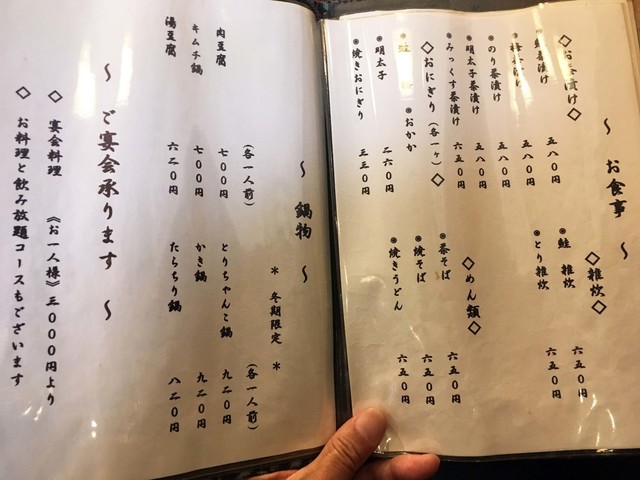 ～ お食事 ～
◇お茶漬け◇
◉鮭茶漬け 五八0円
◉梅茶漬け 五八0円
◉のり茶漬け 五八0円
◉明太子茶漬け 五八0円
◉みっくす茶漬け 六五0円
◇おにぎり（各一ヶ）◇
◉鮭
◉おかか
◉明太子 二六0円
◉焼きおにぎり 三三0円
◇雑炊◇
◉鮭 雑炊 六五0円
◉とり雑炊 六五0円
◇めん類◇
◉茶そば 六五0円
◉焼そば 六五0円
◉焼きうどん 六五0円
～ 鍋物 ～
（各一人前）
肉豆腐 七00円
キムチ鍋 七00円
湯豆腐 六二0円
＊ 冬期限定 ＊
（各一人前）
とりちゃんこ鍋 九二0円
かき鍋 九二0円
たらちり鍋 八二0円
～ ご宴会承ります ～
◇ 宴会料理 《お一人様》三000円より
◇ お料理と飲み放題コースもございます